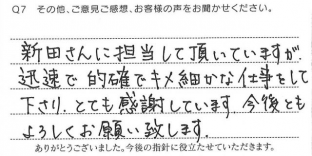 Q7 その他、ご意見ご感想、お客様の声をお聞かせください。
新田さんに担当して頂いていますが、
迅速で的確でキメ細かな仕事をして
下さり、とても感謝しています。今後とも
よろしくお願い致します。
ありがとうございました。今後の指針に役立たせていただきます。